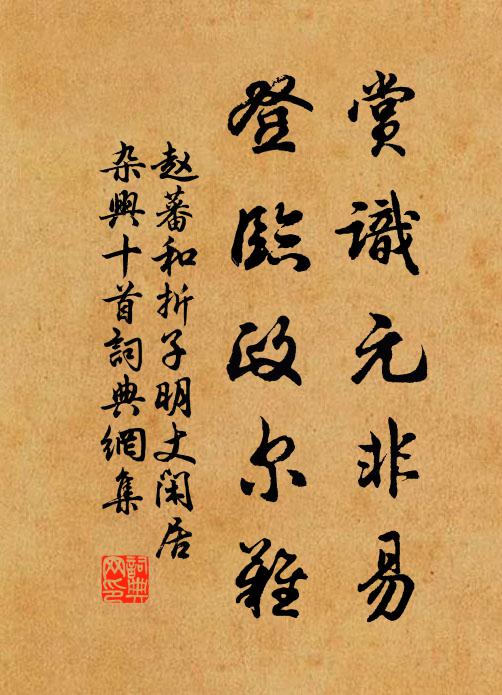 赏識元非易
登臨政尔難
赵蕃和折子明丈闲居
杂興十首詞典網集
詞典网印